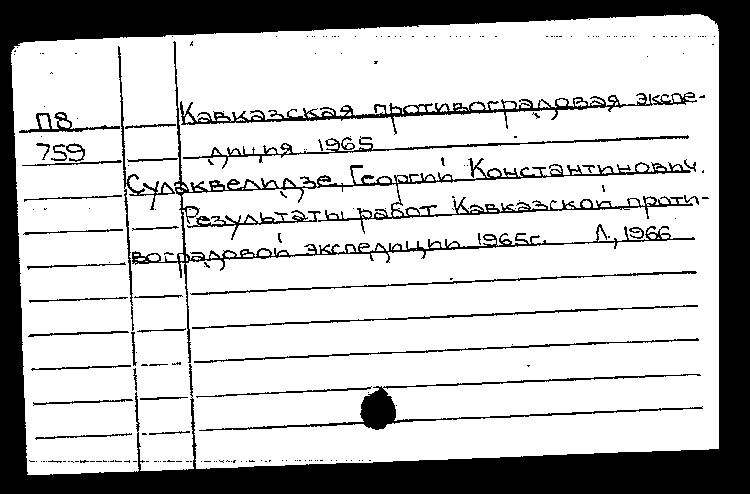 П8 Кавказская противоградовая экспе-
759 диция. 1965
Сулаквелидзе, Георгий Константинович.
Результаты работ Кавказской проти-
воградовой экспедиции 1965г. Л., 1966